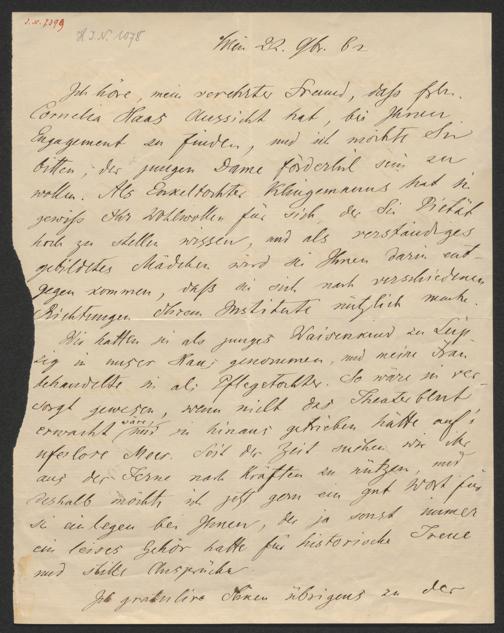 I.N. 7399
H.I.N. 1078
Wien 22. 82
Ich höre, mein verehrter Freund, daß Frln.
Cornelia Haas Aussicht hat, bei Ihnen
Engagement zu finden, und ich möchte Sie
bitten, der jungen Dame förderlich sein zu
wollen. Als Enkeltochter Klingemanns hat sie
gewiß Ihr Wohlwollen für sich, der Sie Pietät
hoch zu stellen wissen, und als verständiges
gebildetes Mädchen wird sie Ihnen darin ent-
gegen kommen, daß sie sich nach verschiedenen
Richtungen Ihrem Institute nützlich mache.
Wir hatten sie als junges Waisenkind zu Leip-
zig in unser Haus genommen, und meine Frau
behandelte sie als Pflegetochter. So wäre sie ver-
sorgt gewesen, wenn nicht das Theaterblut
erwacht wäre und sie hinaus getrieben hätte auf's
uferlose Meer. Seit der Zeit suchen wir ihr
aus der Ferne nach Kräften zu nützen, und
deshalb möchte ich jetzt gern ein gut Wort für
sie einlegen bei Ihnen, der ja sonst immer
ein leises Gehör hatte für historische Treue
und stille Ansprüche.
Ich gratulire Ihnen übrigens zu der